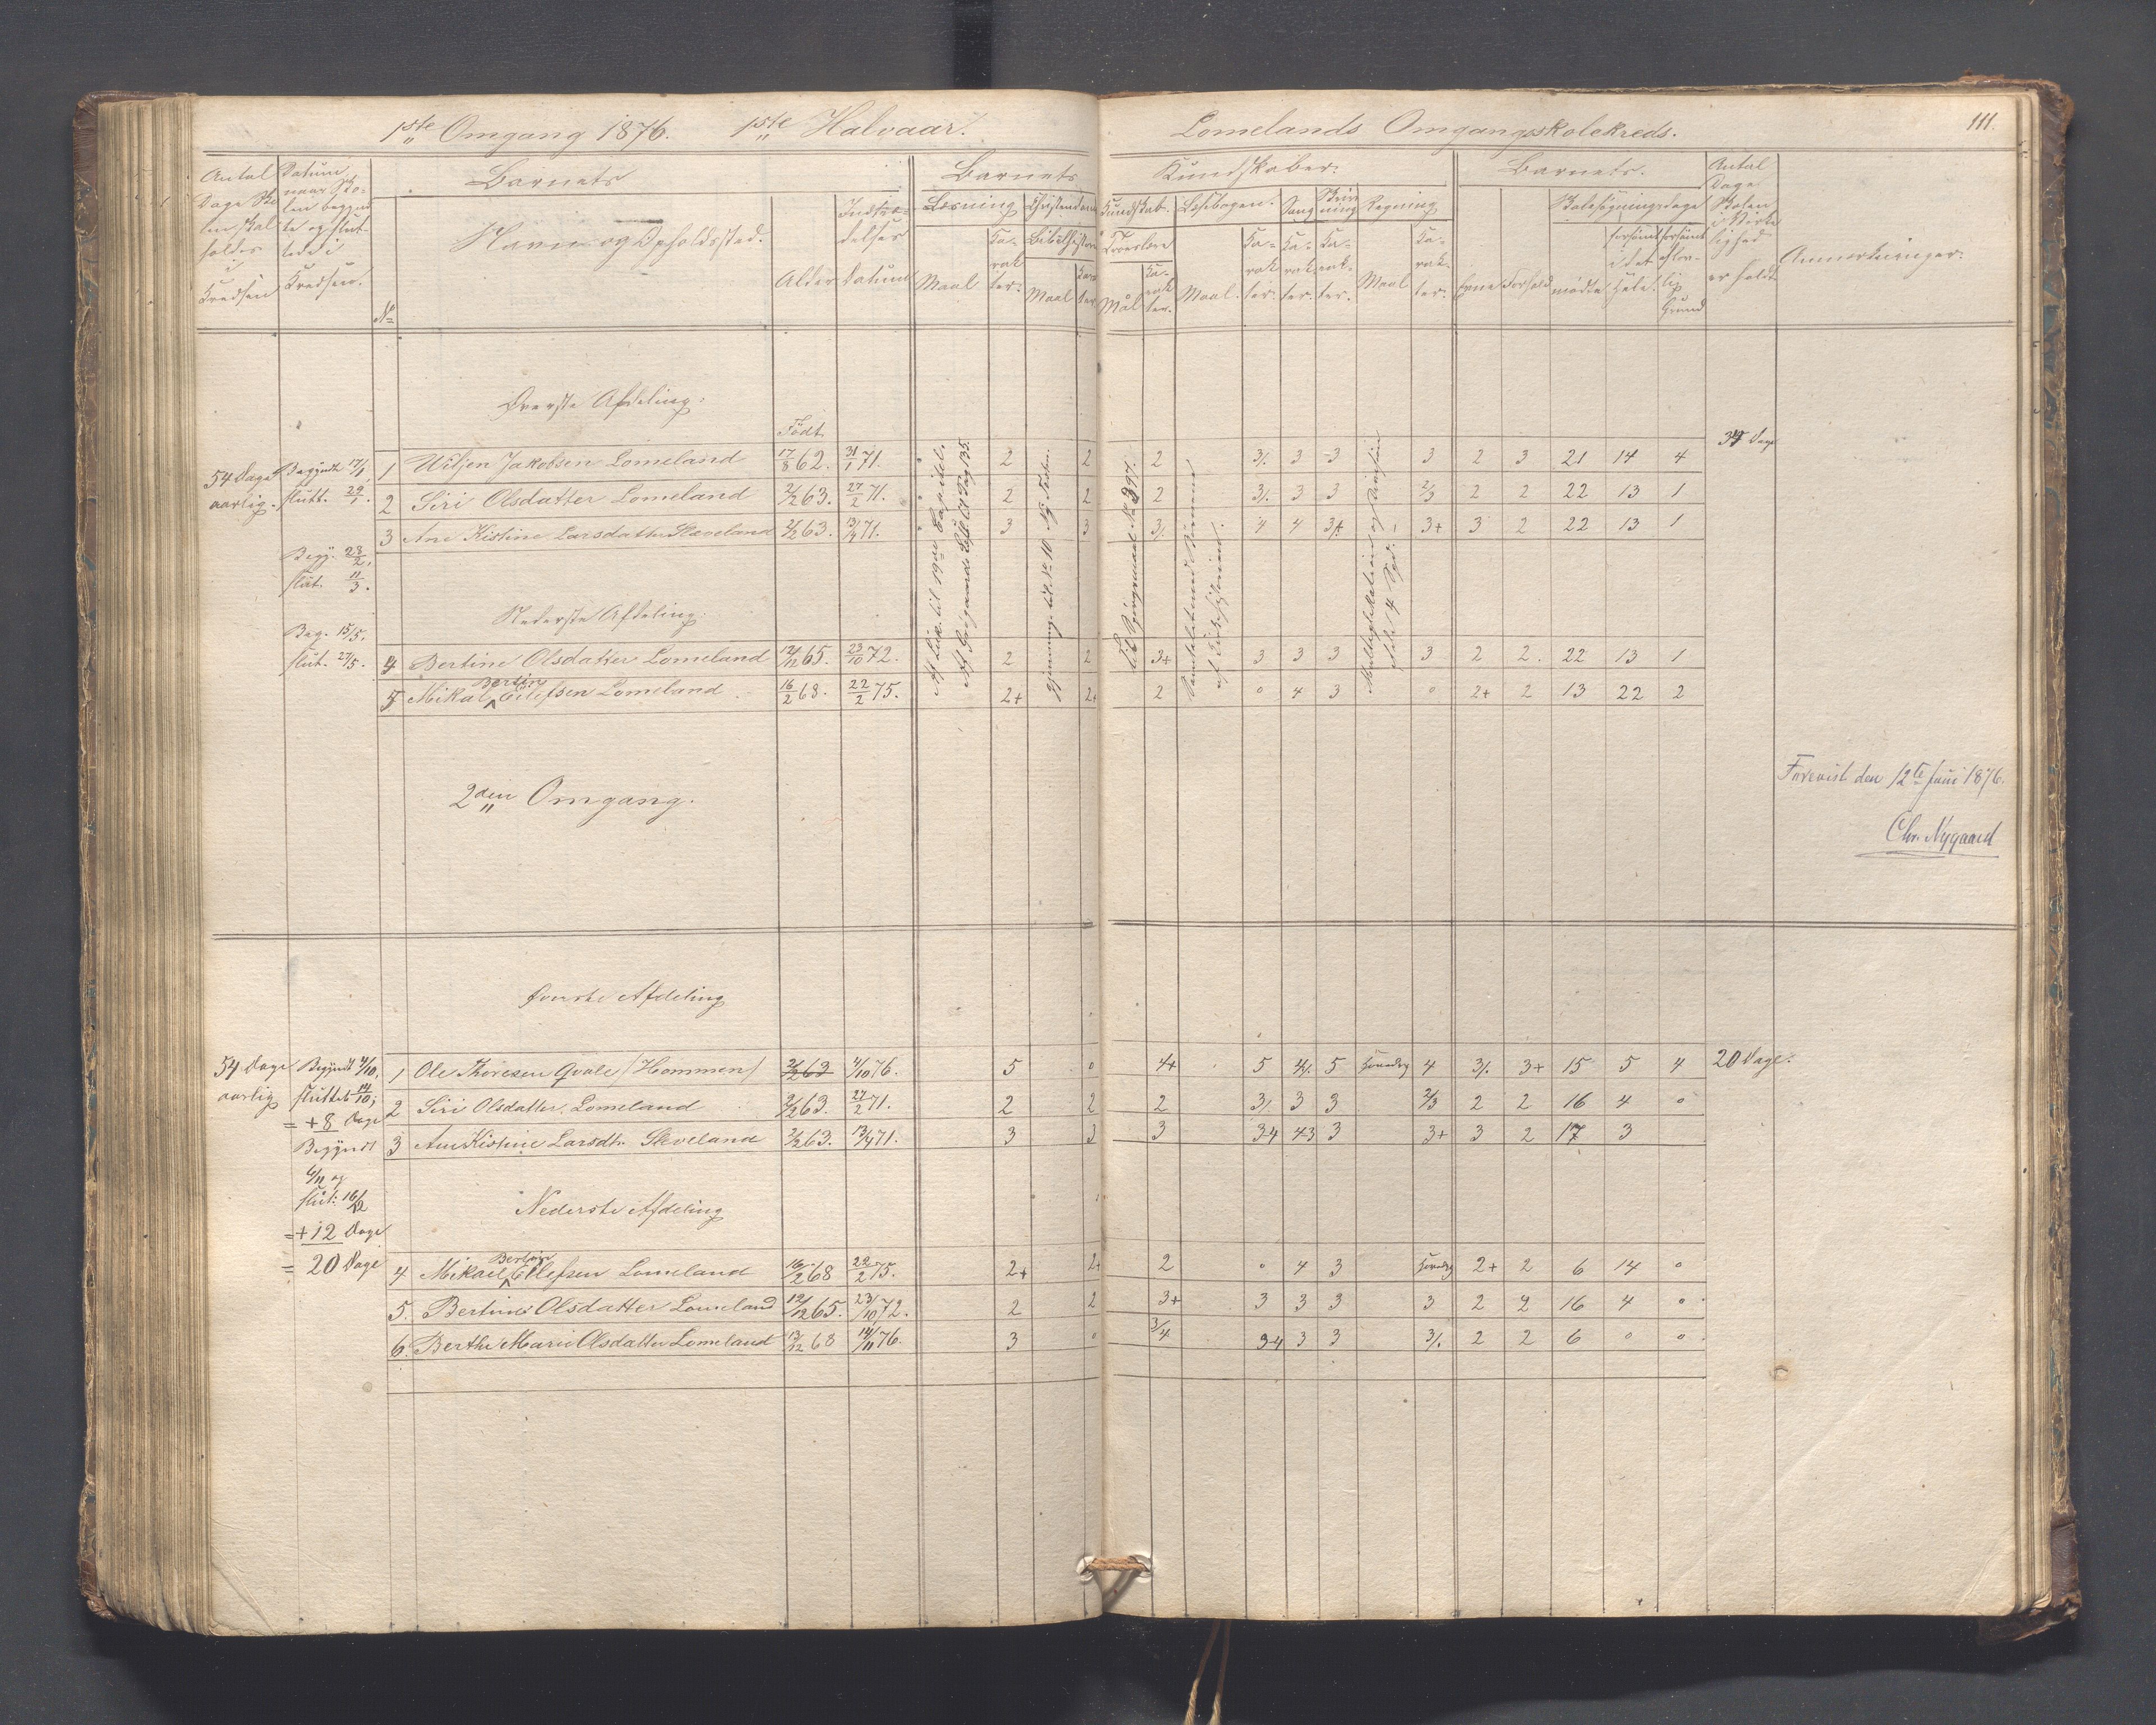 1ste Omgang 1876. 1ste Halvaar.
Lomelands Omgangsskolekreds.
111.
Antal Dage Skolen skal holdes i Kredsen
Datum naar Skolen begyndte og sluttede i Kredsen.
No
Barnets
Navn og Opholdssted.
Alder
Indtrædelses Datum
Barnets Kundskaber.
Læsning
Maal
Karakter.
Christendomskundskab.
Bibelhistorie
Maal
Karakter.
Troeslære
Mål
Karakter.
Læsebogen.
Maal.
Karakter.
Sang
Karakter.
Skrivning
Karakter.
Regning
Maal
Karakter.
Barnets.
Evne
Forhold
Skolesøgningsdage
mødte
forsømt i det Hele.
forsømt af lovlig Grund
Antal Dage Skolen i Virkelighed er holdt
Anmærkninger.
Øverste Afdeling.
Født
54 Dage aarlig.
Begyndt 17/1,
slutt. 29/1.
Begy. 28/2,
slut. 11/3.
Beg. 15/5.
slut. 27/5.
1 Wiljen Jakobsen Lomeland 17/8 62. 31/1 71. 2 2 2 3/. 3 3 3 2 3 21 14 4
34 Dage
2 Siri Olsdatter Lomeland 2/2 63. 27/2 71. 2 2 2 3/. 3 3 2/3 2 2 22 13 1
3 Ane Kistine Larsdatter Skeveland 2/2 63. 13/4 71. 3 3 3/. 4 4 3/. 3+ 3 2 22 13 1
Nederste Afdeling.
4 Bertine Olsdatter Lomeland 12/12 65. 23/10 72. 2 2 3+ 3 3 3 3 2 2. 22 13 1
5 Mikal Bertin Eilefsen Lomeland 16/2 68. 22/2 75. 2+ 2+ 2 0 4 3 0 2+ 2 13 22 2
Til Spørgsmaal No 397.
Multiplikation og Division
2den Omgang.
Forevist den 12te Juni 1876.
Chr. Nygaard
Øverste Afdeling
54 Dage aarlig
Begyndt 4/10,
sluttet 14/10;
= +8 Dage
Begyndt
4/11 og
slut. 16/12
= +12 Dage
= 20 Dage
1 Ole Thoresen Qvale (Hommen) 2/2 63 4/10 76. 5 0 4+ 5 4/. 5 4 3/. 3+ 15 5 4
20 Dage.
2 Siri Olsdatter Lomeland 2/2 63. 27/2 71. 2 2 2 3/. 3 3 2/3 2 2 16 4 0
3 Ane Kistine Larsdtr. Skeveland 2/2 63. 13/4 71. 3 3 3 3-4 4-3 3 3+ 3 2 17 3
Nederste Afdeling
4 Mikael Bertin Eilefsen Lomeland 16/2 68 22/2 75. 2+ 2+ 2 0 4 3 2+ 2 6 14 0
5. Bertine Olsdatter Lomeland 12/12 65. 23/10 72. 2 2 3+ 3 3 3 3 2 2 16 4 0
6. Berthe Marie Olsdatter Lomeland 13/12 68 14/11 76. 3 0 3/4 3-4 3 3 3/. 2 2 6 0 0